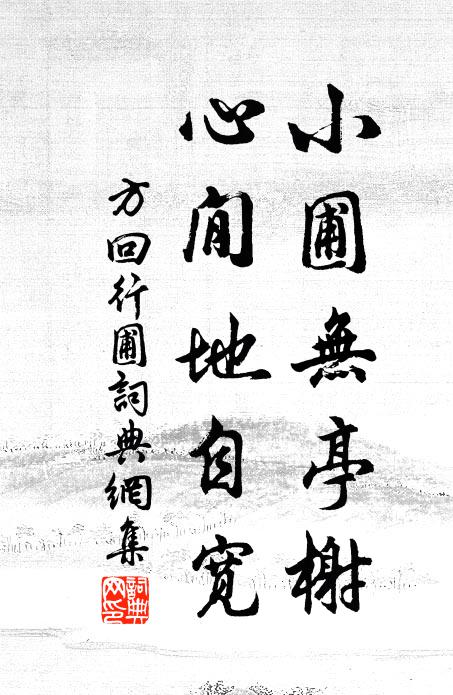 小圃無亭榭
心閒地自寬
方回行圃詞典網集
詞典
网印